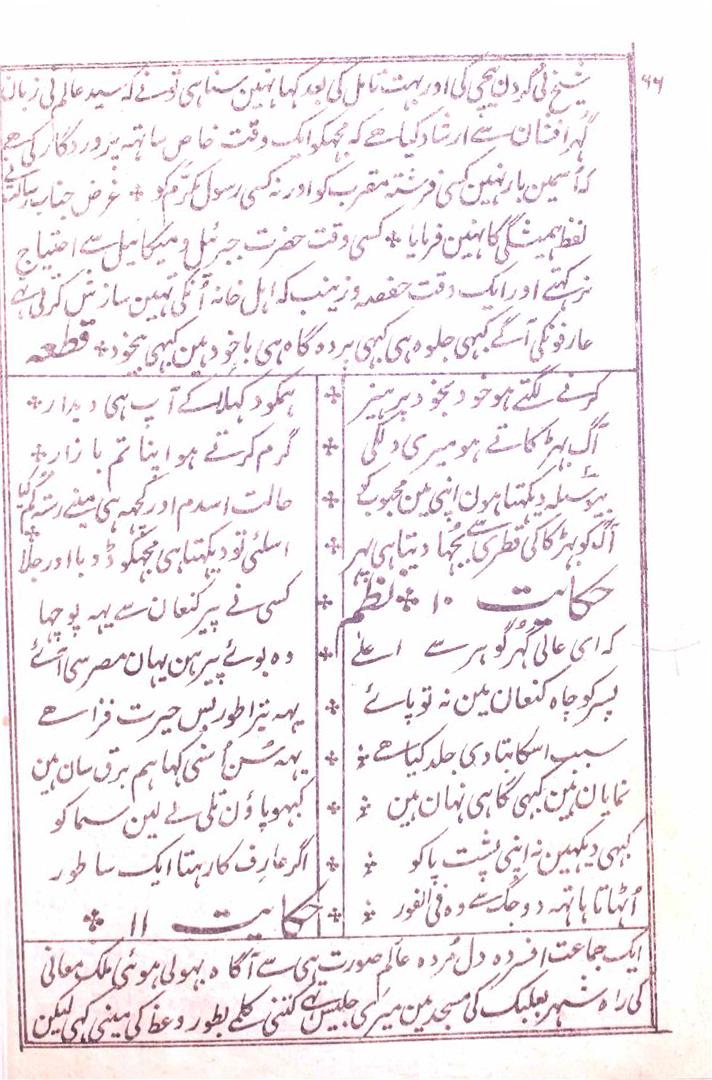 ۶۶
شیخ نی گردن نیچی کی اور بہت تامل کی بعد کہا نہین سنا ہی تو نے کہ سید عالم نی زبان
گہر افشان سے ارشاد کیا ہے کہ مجہکو ایک وقت خاص ساتہہ پروردگار کی ہے
کہ اسمین بار نہین کسی فرشتہ مقرب کو اور نہ کسی رسول مکرّم کو ٭ غرض جناب رسالت نے
لفظ ہمیشگی کا نہین فرمایا ٭ کسی وقت حضرت جبرئیل و میکائیل سے احتیاج
نرکہتے اور ایک وقت حفصہ و زینب کہ اہل خانہ اُنکی تہین سازش کرتی ہے
عارفونکی آگے کبہی جلوہ ہی کبہی پردہ گاہ ہی باخود ہین کبہی بیخود ٭ قطعہ
کرنے لگتے ہو خود بخود پرہیز ٭ ہمکو دکہلاکے آپ ہی دیدار ٭
آگ بہڑکاتے ہو میری دلکی ٭ گرم کرتے ہو اپنا تم بازار ٭
بیوسیلہ دیکہتا ہون اپنی مین محبوب کو ٭ حالت اسدم اور کچہہ ہی مینے رستہ گم کیا
آگ کو بہڑکا کی قطری سے بُجہا دیتا ہی پہر ٭ اسلئی تو دیکہتا ہی مجہکو ڈوبا اور جلا
حکایت ۱۰ ٭ نظم ٭ کسی نے پیر کنعان سے یہہ پوچہا
کہ ای عالی گُہر گوہر سے اعلے ٭ وہ بوئے پیرہن یہان مصر سی آئے
پسر کو چاہ کنعان مین نہ تو پائے ٭ یہہ تیرا طور بس حیرت فزا ہے
سبب اسکا بتا دی جلد کیا ہے ٭ یہہ سُن اُسنی کہا ہم برق سان ہین
نمایان ہین کبہی گاہی نہان ہین ٭ کبہو پاؤن تلی لے لین سما کو
کبہی دیکہین نہ اپنی پشت پا کو ٭ اگر عارف کا رہتا ایک سا طور
اُٹہاتا ہاتہہ دو جگ سے وہ فی الفور ٭ حکایت ۱۱ ٭
ایک جماعت افسردہ دل مُردہ عالم صورت ہی سے آگاہ بہولی ہوئی ملک معانی
کی راہ شہر بعلبک کی مسجد مین میری جلیس تہے کتنی کلمے بطور وعظ کی مینی کہی لیکن